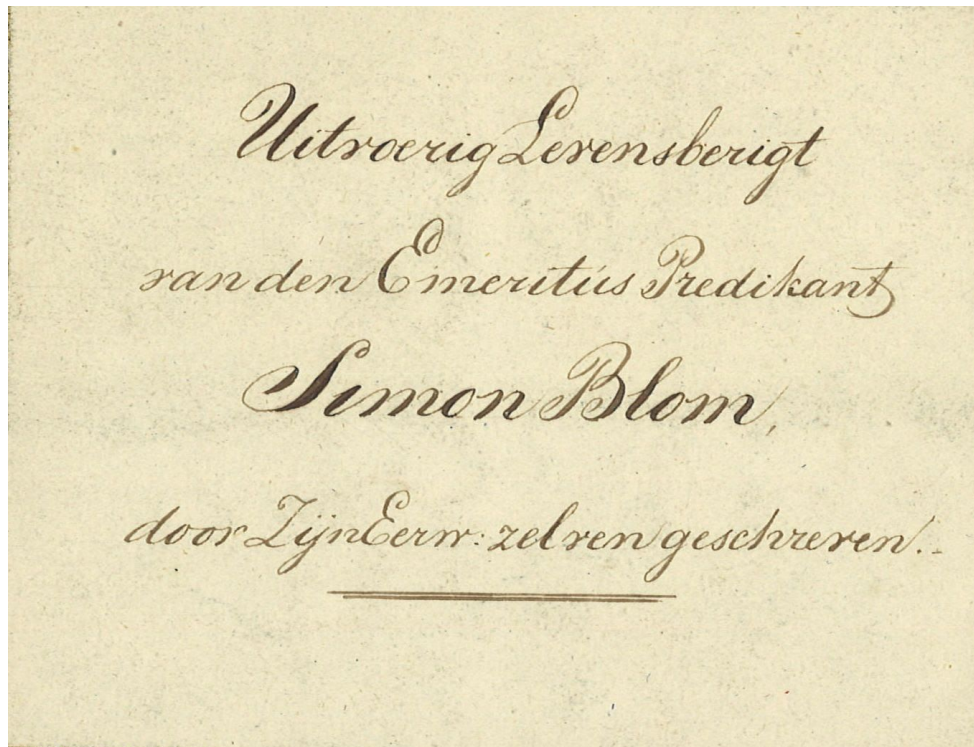 Uitvoerig Levensberigt
van den Emeritus Predikant
Simon Blom,
door Zijn Eerw: zelven geschreven.